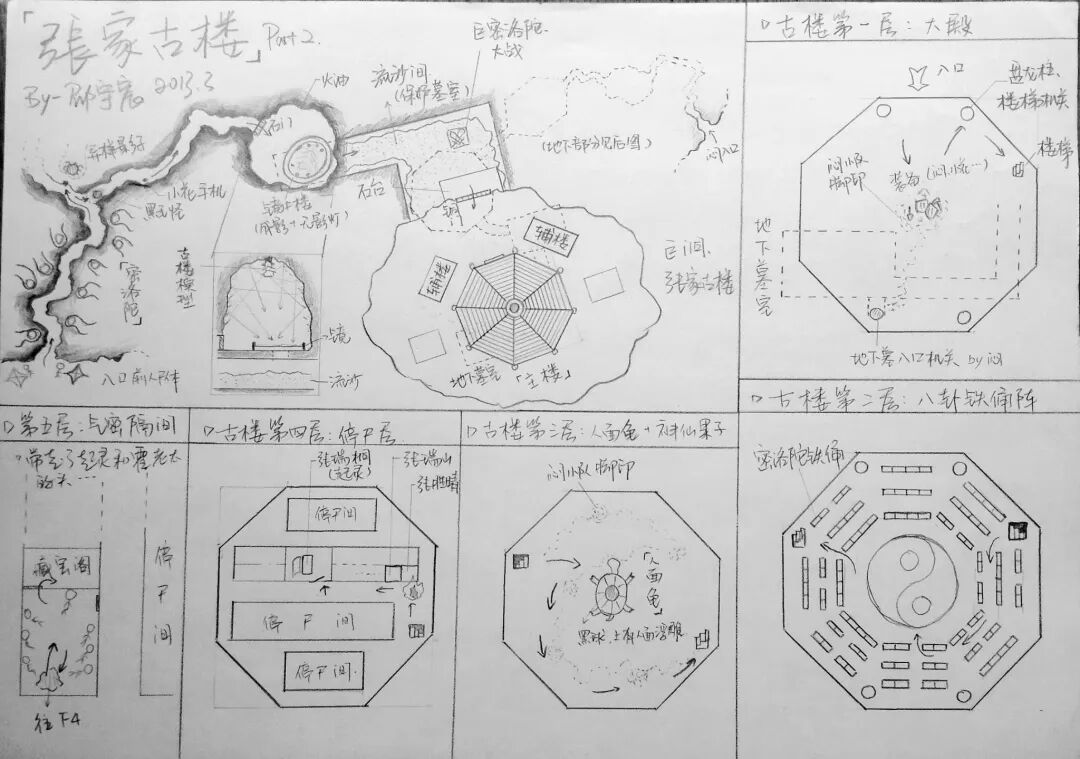 「張家古楼」Part 2.
By-
2013.3
火油
流沙间
(保护墓室)
巨密洛陀
大战
石门
(地下部分见后图)
闷入口
小花手机
黑飞怪
石台
铜
古楼模型
「密洛陀」
镜
流沙
入口前人尸体
辅楼
辅楼
巨洞
张家古楼
地下墓室
「主楼」
▷古楼第一层:大殿
入口
盘龙柱、
楼梯机关
楼梯
闷小队
脚印
装备(闷.小花…)
地下墓室
地下墓入口机关 by闷
▷古楼第二层:八卦铁俑阵
密洛陀铁俑
▷古楼第三层:人面龟+神仙果子
闷小队脚印
「人面龟」
黑球.上有人面浮雕
▷古楼第四层:停尸层
张瑞桐
(起灵)
张瑞山
张胜晴
停尸间
停尸间
停尸间
▷第五层:气密隔间
带走了起灵和霍老太
的头……
藏宝阁
停尸间
往F4